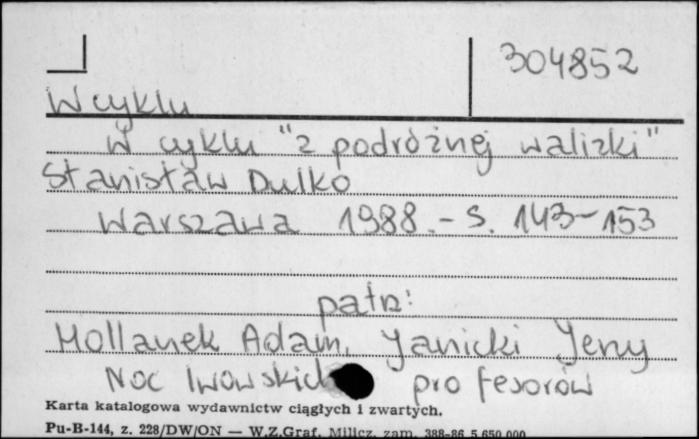 304852
W cyklu
W cyklu "z podróżnej walizki"
Stanisław Dulko
Warszawa 1988. - S. 143-153
patrz:
Hollanek Adam, Janicki Jerzy
Noc lwowskich profesorów
Karta katalogowa wydawnictw ciągłych i zwartych.
Pu-B-144, z. 228/DW/ON — W.Z.Graf. Milicz, zam. 388-86 5 650 000